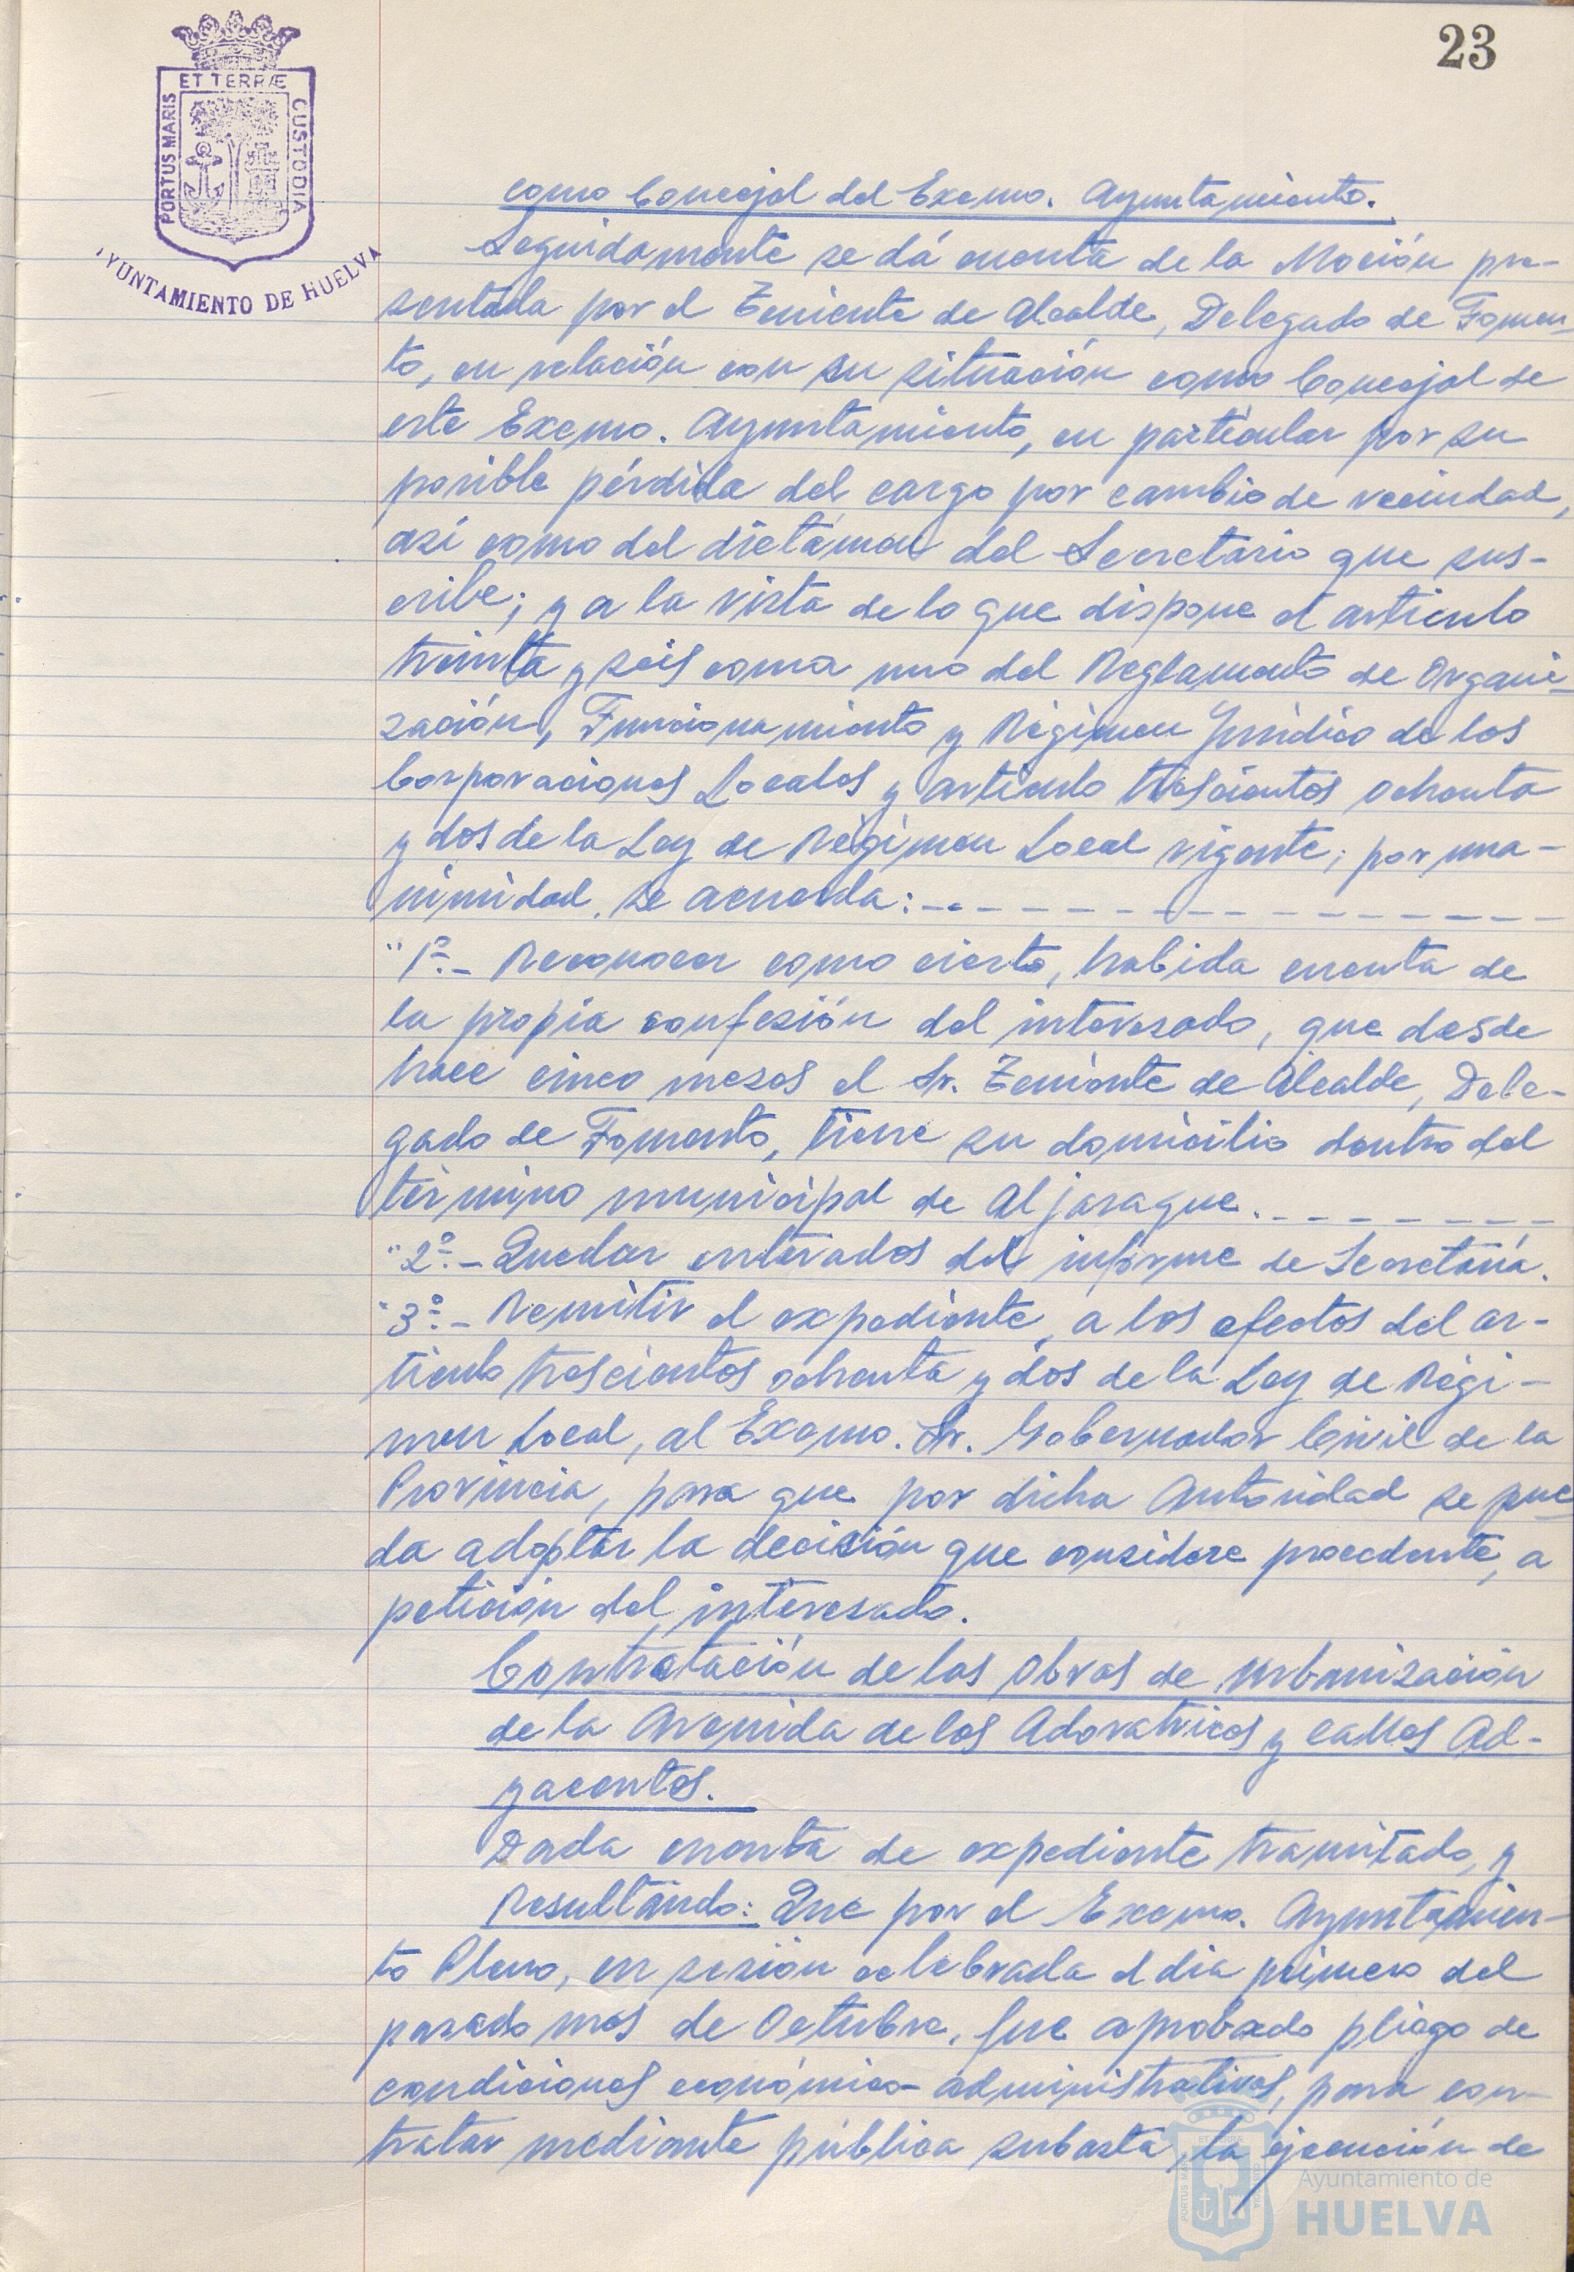 23
ET TERRÆ
PORTUS MARIS
CUSTODIA
AYUNTAMIENTO DE HUELVA
como Concejal del Excmo. Ayuntamiento.
Seguidamente se dá cuenta de la Moción pre-
sentada por el Teniente de Alcalde, Delegado de Fomen-
to, en relación con su situación como Concejal de
este Excmo. Ayuntamiento, en particular por su
posible pérdida del cargo por cambio de vecindad,
asi como del dictámen del Secretario que sus-
cribe; y a la vista de lo que dispone el articulo
treinta y seis coma uno del Reglamento de Organi-
zación, Funcionamiento y Régimen Juridico de las
Corporaciones Locales y articulo trescientos ochenta
y dos de la Ley de Régimen Local vigente; por una-
nimidad, se acuerda:
"1º.- Reconocer como cierto, habida cuenta de
la propia confesión del interesado, que desde
hace cinco meses el Sr. Teniente de Alcalde, Dele-
gado de Fomento, tiene su domicilio dentro del
término municipal de Aljaraque.
"2º.- Quedar enterados del informe de Secretaría.
"3º.- Remitir el expediente, a los efectos del ar-
ticulo trescientos ochenta y dos de la Ley de Régi-
men Local, al Excmo. Sr. Gobernador Civil de la
Provincia, para que por dicha Autoridad se pue
da adoptar la decisión que considere procedente, a
petición del interesado.
Contratación de las obras de urbanización
de la Avenida de las Adoratrices y calles Ad-
yacentes.
Dada cuenta de expediente tramitado, y
Resultando: Que por el Excmo. Ayuntamien-
to Pleno, en sesión celebrada el dia primero del
pasado mes de Octubre, fue aprobado pliego de
condiciones económico-administrativas, para con-
tratar mediante pública subasta, la ejecución de
Ayuntamiento de
HUELVA